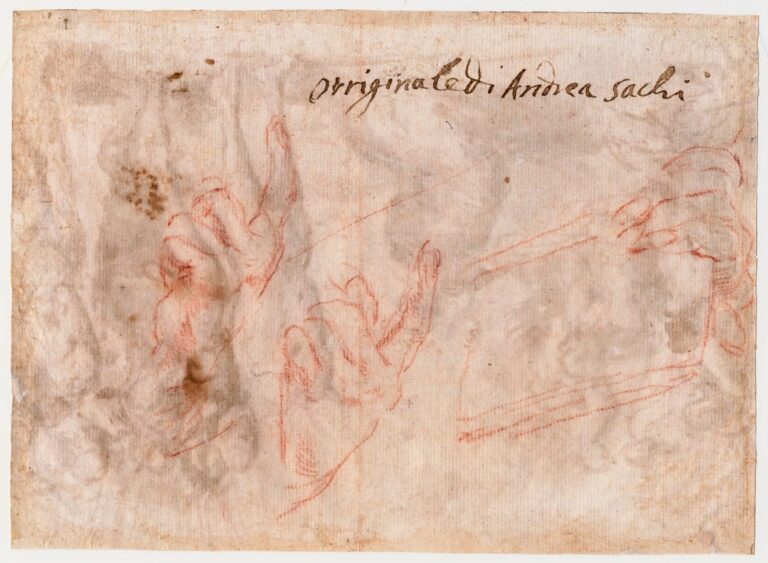 orriginale di Andrea Sachi